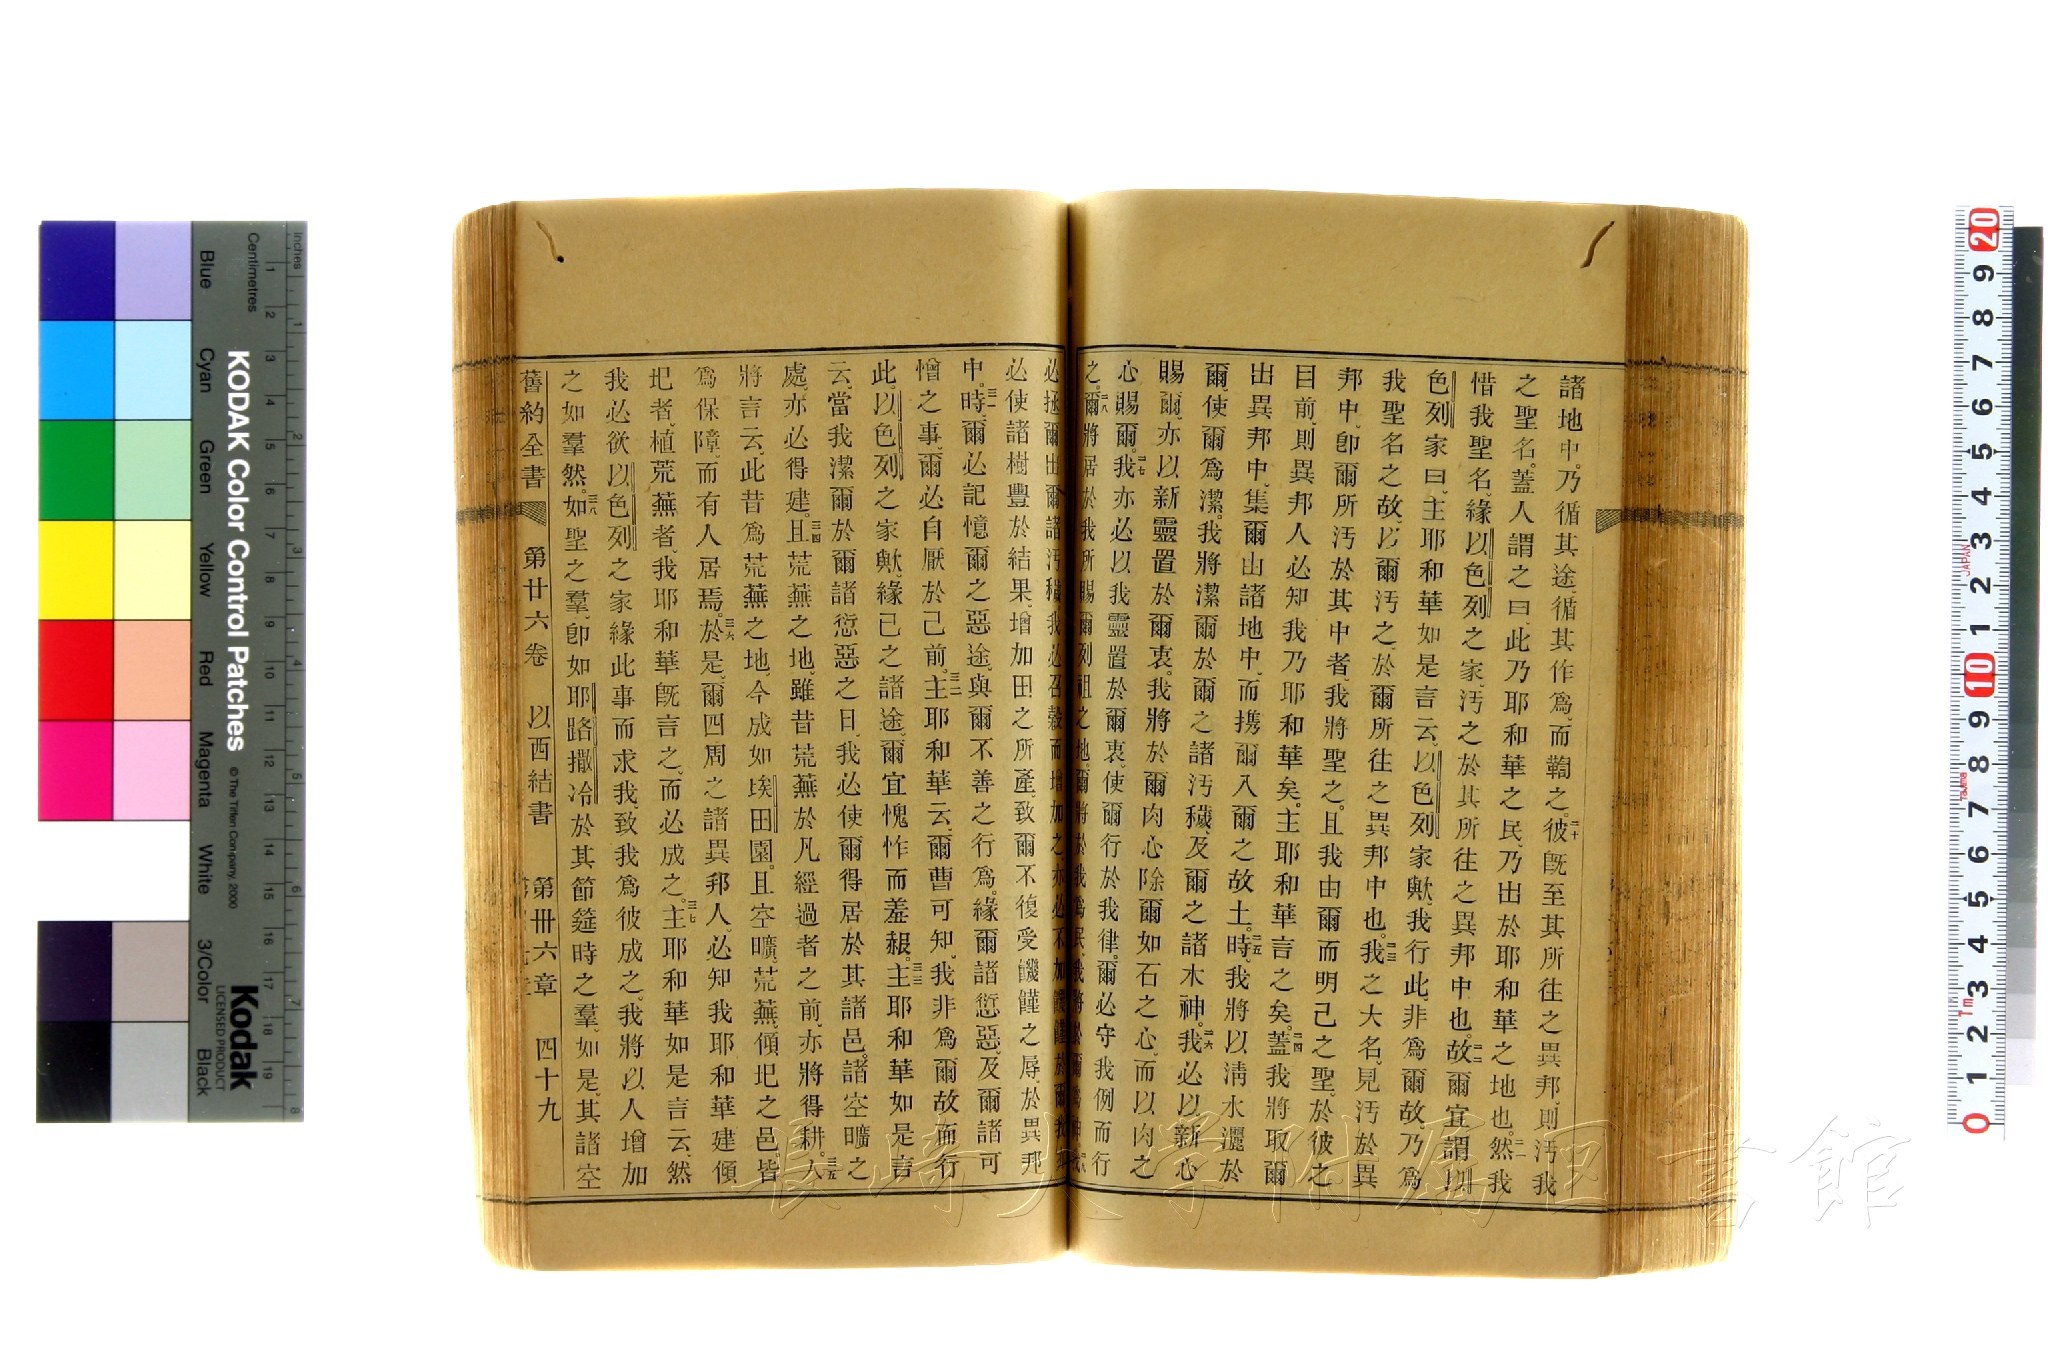 諸地中。乃循其途、循其作爲、而鞫之。二十彼既至其所往之異邦、則汚我
之聖名。蓋人謂之曰、此乃耶和華之民、乃出於耶和華之地也。二一然我
惜我聖名、緣以色列之家、汚之於其所往之異邦中也。二二故爾宜謂以
色列家曰、主耶和華如是言云、以色列家歟、我行此、非爲爾故、乃爲
我聖名之故、以爾汚之、於爾所往之異邦中也。二三我之大名、見汚於異
邦中、卽爾所汚於其中者、我將聖之。且我由爾而明己之聖、於彼之
目前、則異邦人必知我乃耶和華矣。主耶和華言之矣。二四蓋我將取爾
出異邦中、集爾出諸地中、而携爾入爾之故土。二五時、我將以淸水灑於
爾、使爾爲潔。我將潔爾於爾之諸汚穢、及爾之諸木神。二六我必以新心
賜爾、亦以新靈置於爾衷。我將於爾肉心除爾如石之心、而以肉之
心賜爾。二七我亦必以我靈置於爾衷、使爾行於我律。爾必守我例而行
之。二八爾將居於我所賜爾列祖之地。爾將於我爲民、我將於爾爲神。
必拯爾出爾諸汚穢、我必召穀而增加之、亦必不加饑饉於爾。
必使諸樹豐於結果、增加田之所產、致爾不復受饑饉之辱、於異邦
中。三一時、爾必記憶爾之惡途、與爾不善之行爲。緣爾諸愆惡、及爾諸可
憎之事、爾必自厭於己前。三二主耶和華云、爾曹可知、我非爲爾故而行
此。以色列之家歟、緣己之諸途、爾宜愧怍而羞赧。三三主耶和華如是言
云、當我潔爾於爾諸愆惡之日、我必使爾得居於其諸邑。諸空曠之
處、亦必得建。三四且荒蕪之地、雖昔荒蕪於凡經過者之前、亦將得耕。三五人
將言云、此昔爲荒蕪之地、今成如埃田園。且空曠、荒蕪、傾圮之邑、皆
爲保障、而有人居焉。三六於是、爾四周之諸異邦人、必知我耶和華建傾
圮者、植荒蕪者、我耶和華既言之、而必成之。三七主耶和華如是言云、然
我必欲以色列之家緣此事而求我、致我爲彼成之。我將以人增加
之如羣然。三八如聖之羣、卽如耶路撒冷於其節筵時之羣、如是、其諸空
舊約全書 第廿六卷 以西結書 第卅六章 四十九